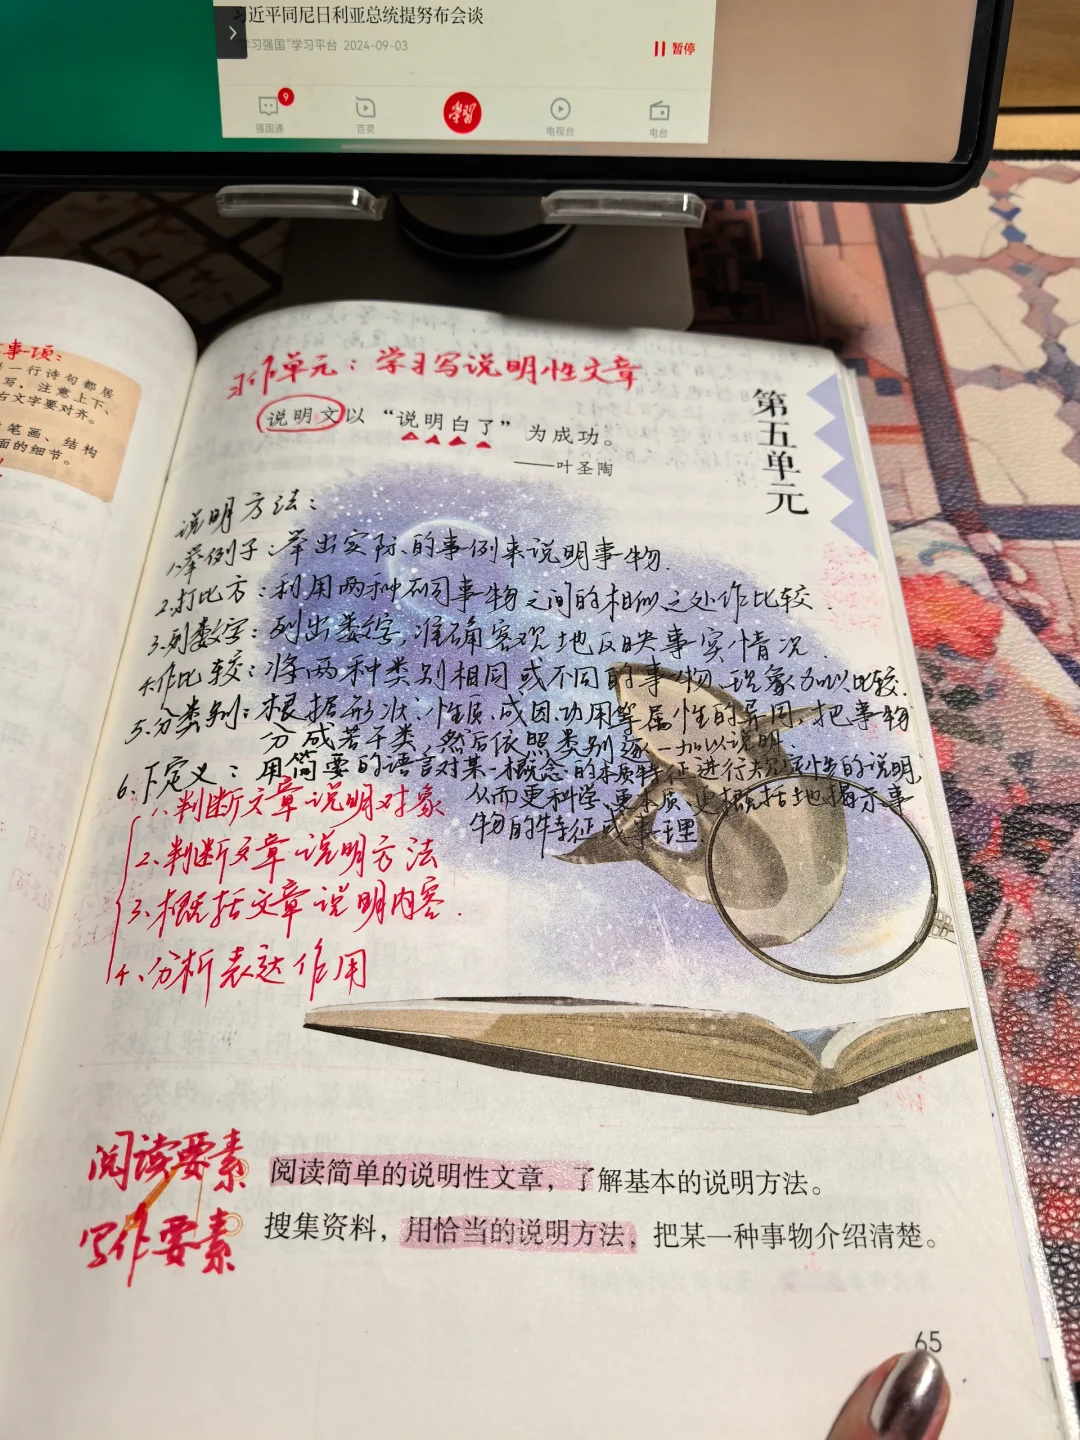 习近平同尼日利亚总统提努布会谈
"学习强国"学习平台 2024-09-03
暂停
9
强国通
百灵
电视台
电台
事项：
一行诗句都居
写，注意上下、
右文字要对齐。
笔画、结构
面的细节。
习作单元：学习写说明性文章
说明文以“说明白了”为成功。
——叶圣陶
第五单元
说明方法：
1.举例子：举出实际的事例来说明事物.
2.打比方：利用两种不同事物之间的相似之处作比较.
3.列数字：列出数字，准确客观地反映事实情况.
4.作比较：将两种类别相同或不同的事物、现象加以比较.
5.分类别：根据形状、性质、成因、功用等属性的异同，把事物
分成若干类，然后依照类别逐一加以说明.
6.下定义：用简要的语言对某一概念的本质特征进行规定性的说明，
从而更科学、更本质、更概括地揭示事
物的特征或事理
1.判断文章说明对象
2.判断文章说明方法
3.概括文章说明内容.
4.分析表达作用
阅读要素
阅读简单的说明性文章，了解基本的说明方法。
写作要素
搜集资料，用恰当的说明方法，把某一种事物介绍清楚。
65